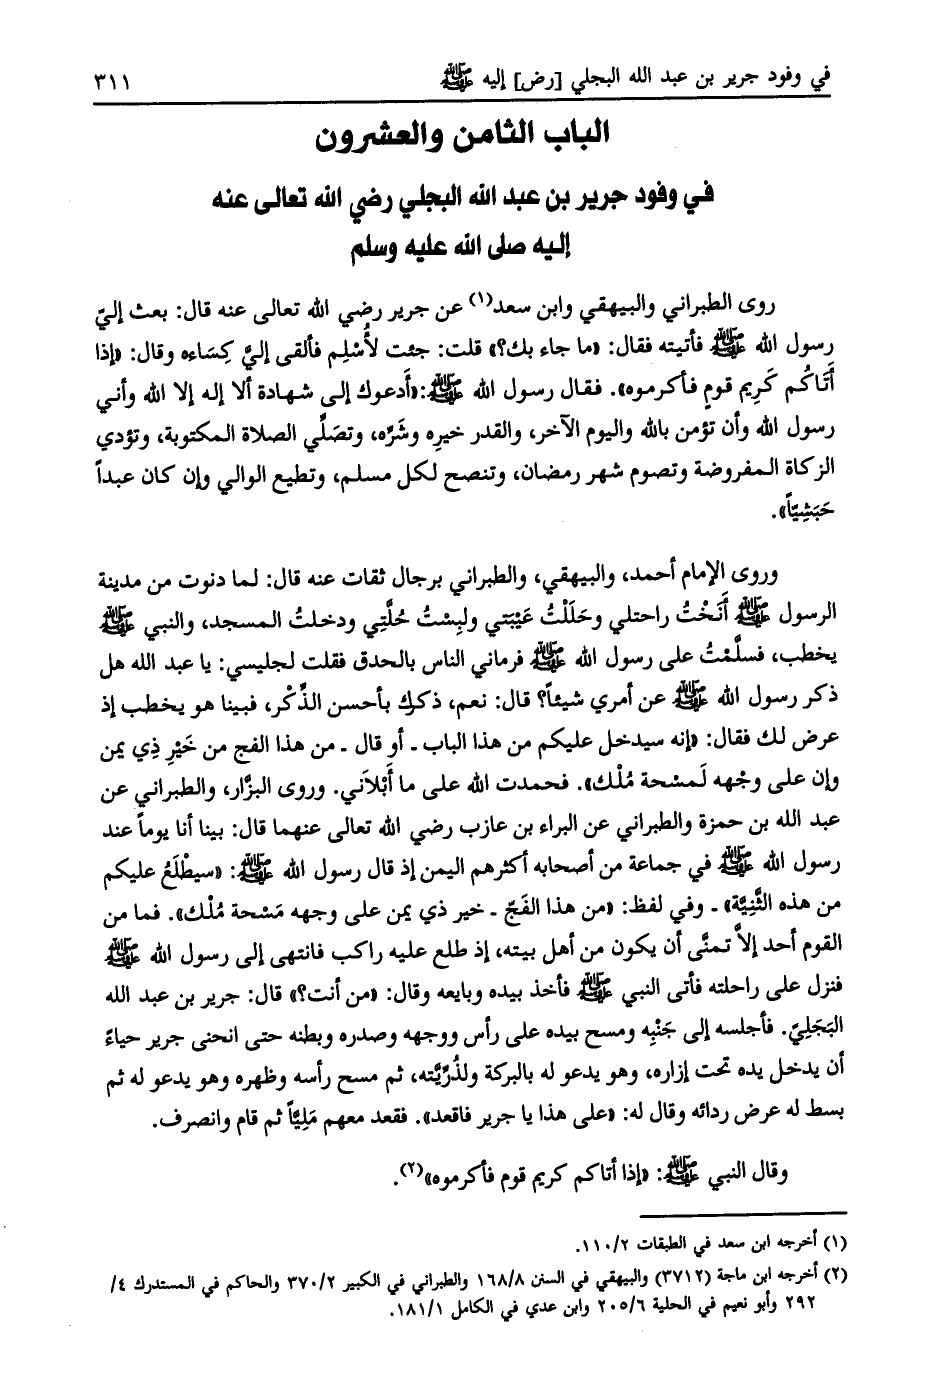 في وفود جرير بن عبد الله البجلي [رض] إليه ﷺ ٣١١
الباب الثامن والعشرون
في وفود جرير بن عبد الله البجلي رضي الله تعالى عنه
إليه صلى الله عليه وسلم
روى الطبراني والبيهقي وابن سعد(١) عن جرير رضي الله تعالى عنه قال: بعث إليّ
رسول الله ﷺ فأتيته فقال: «ما جاء بك؟» قلت: جئت لأُسْلِم فألقى إليَّ كِسَاءه وقال: «إذا
أَتَاكُم كَرِيم قومٍ فأكرموه». فقال رسول الله ﷺ:«أَدعوك إلى شهادة ألا إله إلا الله وأني
رسول الله وأن تؤمن بالله واليوم الآخر، والقدر خيرِه وشَرِّه، وتصَلِّي الصلاة المكتوبة، وتؤدي
الزكاة المفروضة وتصوم شهر رمضان، وتنصح لكل مسلم، وتطيع الوالي وإن كان عبداً
حَبَشِيّاً».
وروى الإمام أحمد، والبيهقي، والطبراني برجال ثقات عنه قال: لما دنوت من مدينة
الرسول ﷺ أَنَخْتُ راحتلي وحَلَلْتُ عَيْبَتي ولبِسْتُ حُلَّتِي ودخلتُ المسجد، والنبي ﷺ
يخطب، فسلَّمْتُ على رسول الله ﷺ فرماني الناس بالحدق فقلت لجليسي: يا عبد الله هل
ذكر رسول الله ﷺ عن أمري شيئاً؟ قال: نعم، ذكرك بأحسن الذِّكْر، فبينا هو يخطب إذ
عرض لك فقال: «إنه سيدخل عليكم من هذا الباب ـ أو قال ـ من هذا الفج من خَيْرِ ذِي يمن
وإن على وجْهه لَمسْحة مُلْك». فحمدت الله على ما أَبْلاَني. وروى البزَّار، والطبراني عن
عبد الله بن حمزة والطبراني عن البراء بن عازب رضي الله تعالى عنهما قال: بينا أنا يوماً عند
رسول الله ﷺ في جماعة من أصحابه أكثرهم اليمن إذ قال رسول الله ﷺ: «سيطْلَعُ عليكم
من هذه الثَّنِيَّة» ـ وفي لفظ: «من هذا الفَجّ ـ خير ذي يمن على وجهه مَسْحة مُلْك». فما من
القوم أحد إلاَّ تمنَّى أن يكون من أهل بيته، إذ طلع عليه راكب فانتهى إلى رسول الله ﷺ
فنزل على راحلته فأتى النبي ﷺ فأخذ بيده وبايعه وقال: «من أنت؟» قال: جرير بن عبد الله
البَجَلِيّ. فأجلسه إلى جَنْبِه ومسح بيده على رأس ووجهه وصدره وبطنه حتى انحنى جرير حياءً
أن يدخل يده تحت إزاره، وهو يدعو له بالبركة ولذُرِّيَّته، ثم مسح رأسه وظهره وهو يدعو له ثم
بسط له عرض ردائه وقال له: «على هذا يا جرير فاقعد». فقعد معهم مَلِيّاً ثم قام وانصرف.
وقال النبي ﷺ: «إذا أتاكم كريم قوم فأكرموه»(٢).
(١) أخرجه ابن سعد في الطبقات ١١٠/٢.
(٢) أخرجه ابن ماجة (٣٧١٢) والبيهقي في السنن ١٦٨/٨ والطبراني في الكبير ٣٧٠/٢ والحاكم في المستدرك ٤/
٢٩٢ وأبو نعيم في الحلية ٢٠٥/٦ وابن عدي في الكامل ١٨١/١.